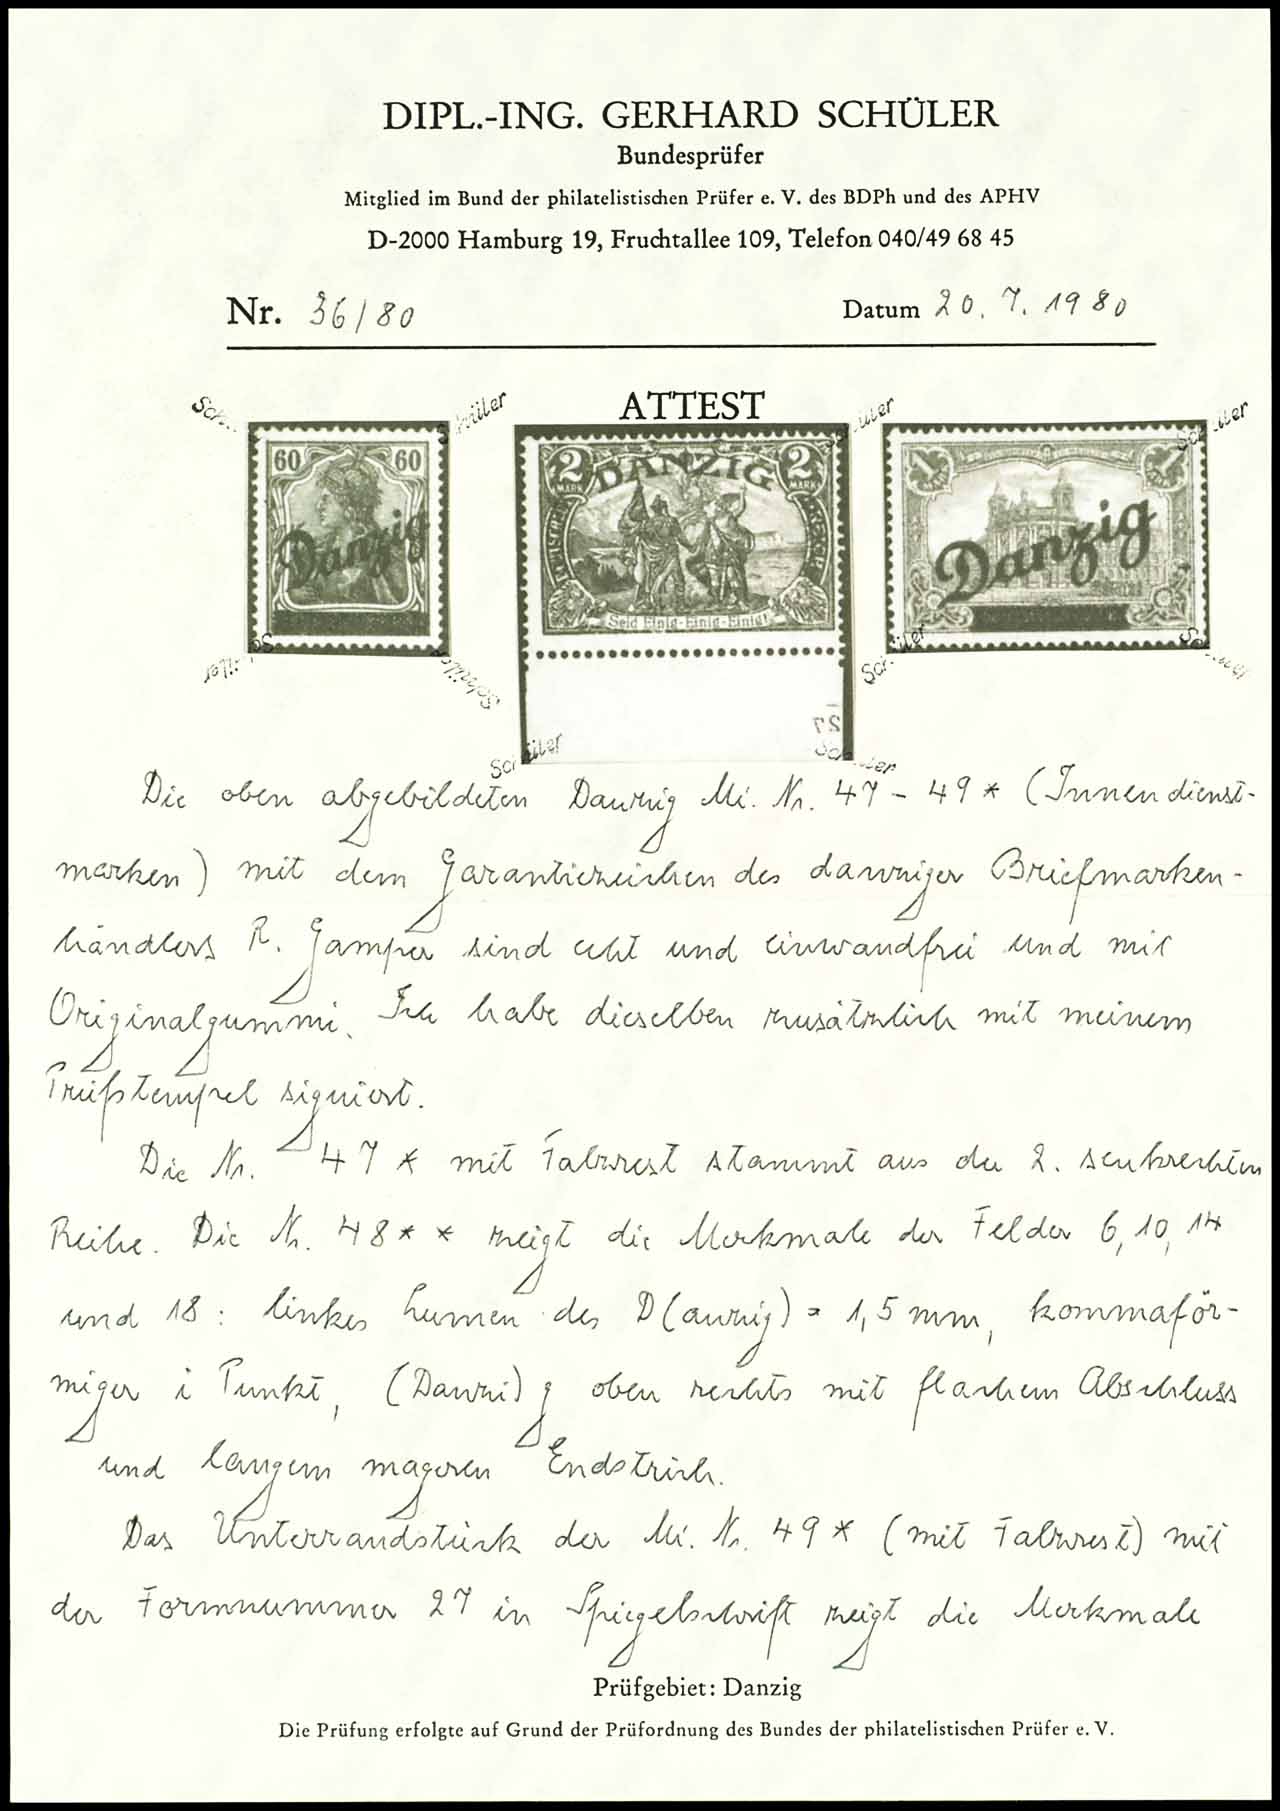 DIPL.-ING. GERHARD SCHÜLER
Bundesprüfer
Mitglied im Bund der philatelistischen Prüfer e. V. des BDPh und des APHV
D-2000 Hamburg 19, Fruchtallee 109, Telefon 040/49 68 45
Nr. 36/80 Datum 20.7.1980
ATTEST
Schüler Schüler Schüler
60 60
Danzig
2 MARK DANZIG 2 MARK
Seid Einig-Einig-Einig!
27
1 1
Danzig
Schüler Schüler Schüler Schüler
Schüler Schüler
Die oben abgebildeten Danzig Mi. Nr. 47 - 49 * (Innendienst-
marken) mit dem Garantiezeichen des danziger Briefmarken-
händlers R. Gamper sind echt und einwandfrei und mit
Originalgummi. Ich habe dieselben zusätzlich mit meinem
Prüfstempel signiert.
Die Nr. 47 * mit Falzrest stammt aus der 2. senkrechten
Reihe. Die Nr. 48 * * zeigt die Merkmale der Felder 6, 10, 14
und 18: linkes Lumen des D(anzig) = 1,5 mm, kommaför-
miger i Punkt, (Danzi)g oben rechts mit flachem Abschluss
und langem mageren Endstrich.
Das Unterrandstück der Mi. Nr. 49 * (mit Falzrest) mit
der Formnummer 27 in Spiegelschrift zeigt die Merkmale
Prüfgebiet: Danzig
Die Prüfung erfolgte auf Grund der Prüfordnung des Bundes der philatelistischen Prüfer e. V.